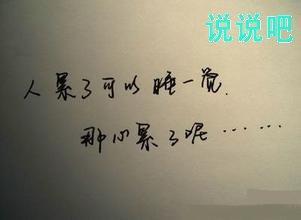 说说吧
人累了可以睡一觉.
那心累了呢……